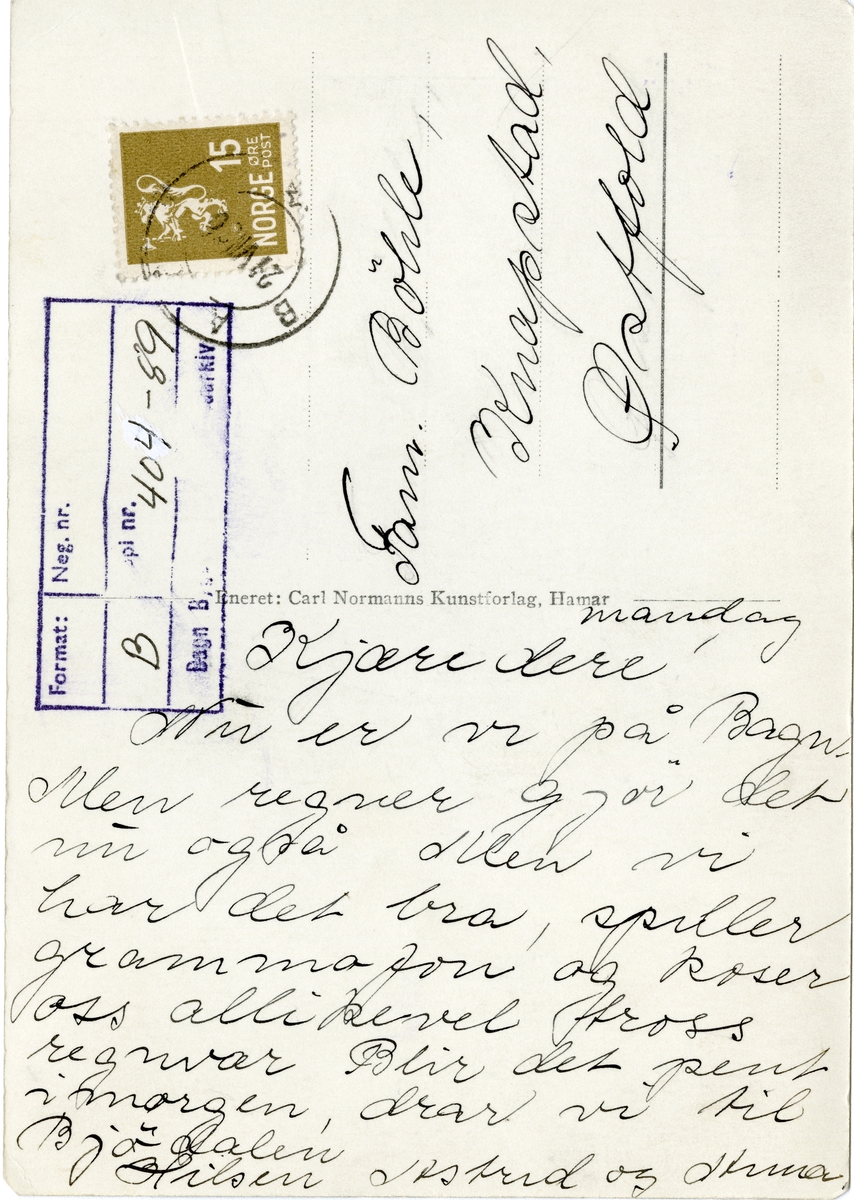 15
ØRE
POST
NORGE
B A
Format:
Neg. nr.
B
pi nr.
404-89
Bagn B.
arkiv
Fam. Böhle,
Knapstad,
Østfold
Eneret: Carl Normanns Kunstforlag, Hamar
mandag
Kjære dere,
Nu er vi på Bagn.
Men regner gjör det
nu også Men vi
har det bra, spiller
grammofon og koser
oss allikevel tross
regnvær Blir det pent
i morgen, drar vi til
Bjödalen
Hilsen Astrid og Anna